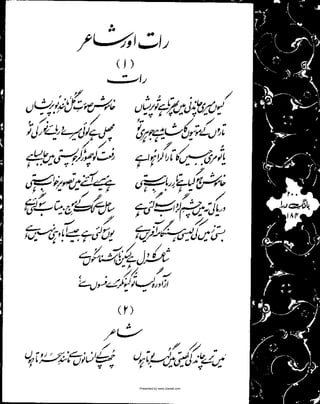 رات اور شاعر
(۱)
رات
کیوں میری چاندنی میں پھرتا ہے تو پریشاں خاموش صورتِ گل، مانندِ بو پریشاں
تاروں کے موتیوں کا شاید ہے جوہری تو مچھلی ہے کوئی میرے دریائے نور کی تو
یا تو مری جبیں کا تارا گرا ہوا ہے رفعت کو چھوڑ کر جو پستی میں جا بسا ہے
خاموش ہو گیا ہے تارِ ربابِ ہستی ہے میرے آئنے میں تصویرِ خوابِ ہستی
دریا کی تہ میں چشمِ گرداب سو گئی ہے ساحل سے لگ کے موجِ بیتاب سو گئی ہے
بستی زمیں کی کیسی ہنگامہ آفریں ہے یوں سو گئی ہے جیسے آباد ہی نہیں ہے
شاعر کا دل ہے لیکن ناآشنا سکوں سے
آزاد رہ گیا تو کیونکر مرے فسوں سے
(۲)
شاعر
میں ترے چاند کی کھیتی میں گہر بوتا ہوں چھپ کے انسانوں سے مانندِ سحر روتا ہوں
۲۰۰
بانگِ درا
Presented by www.ziaraat.com